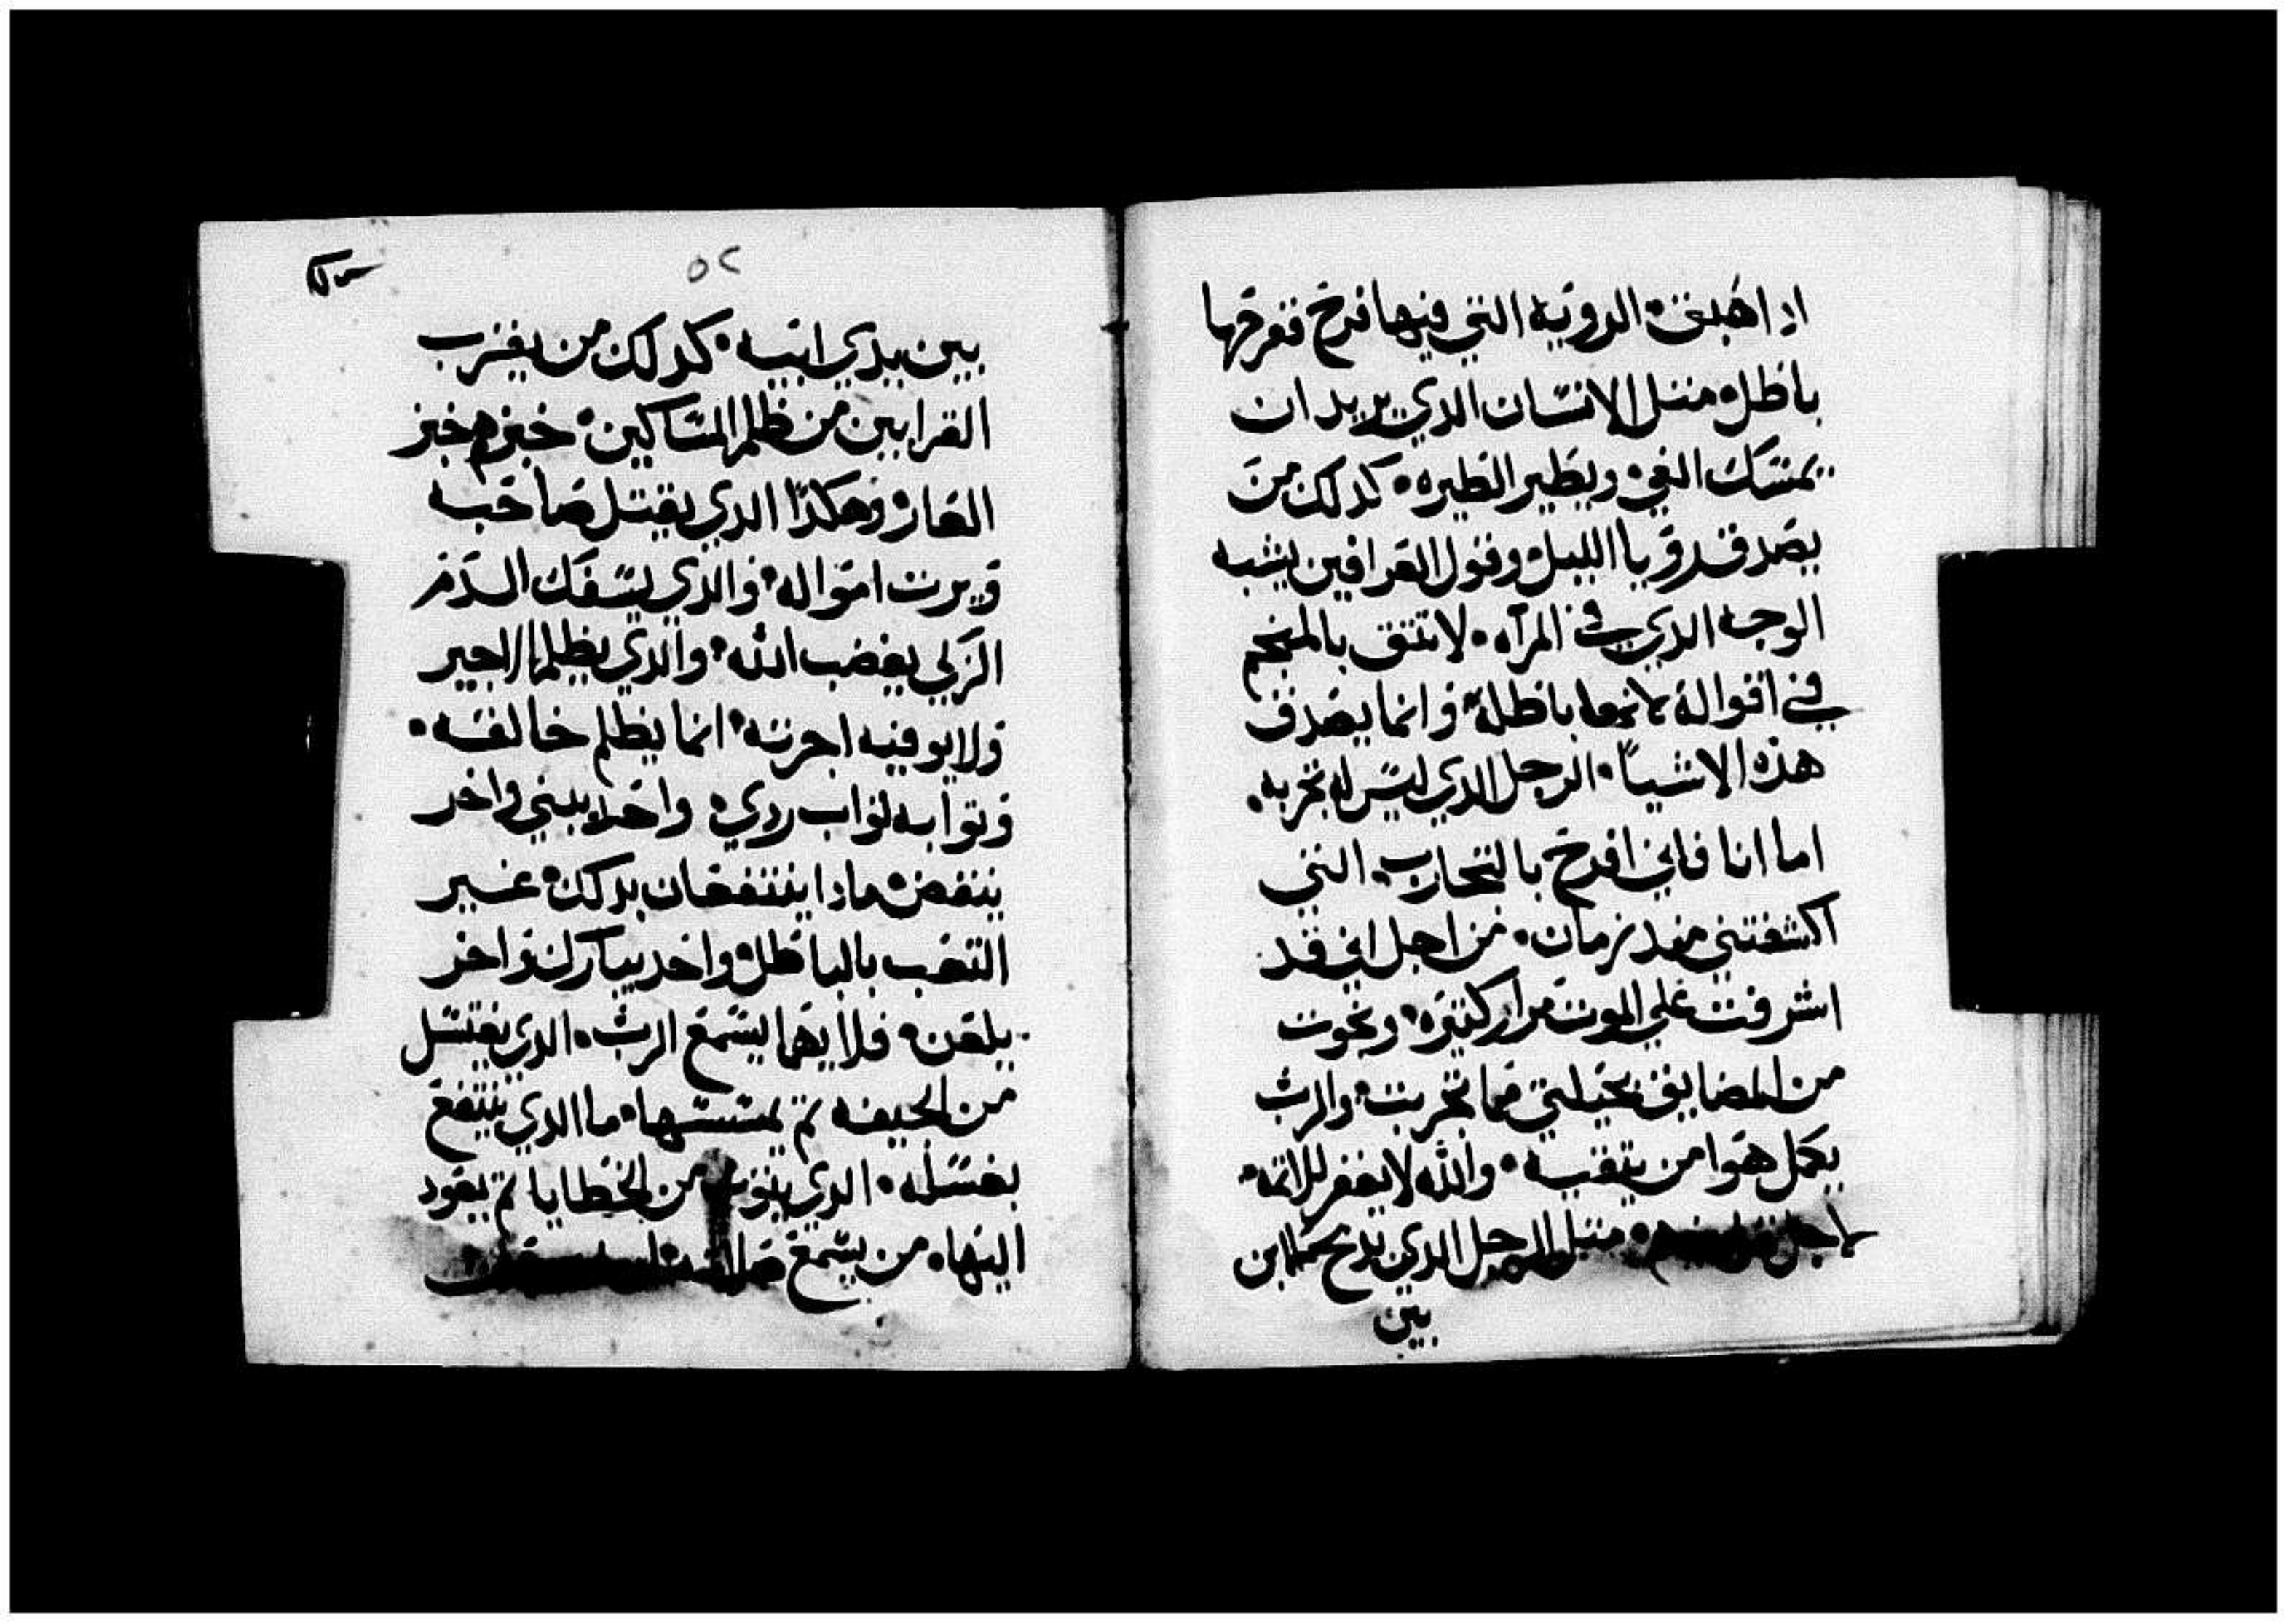 ادا هبت الرويه التي فيها فرح ففرحها
باطل مثل الانسان الدي يريد ان
يمسك الفي ويطير الطيره كدلك من
يصدق رويا الليل وقول العرافين يشبه
الوجه الدي في المرآه لا تتق بالمنجم
في اقواله لانها باطلة وانما يصدق
هذه الاشيا الرجل الدي ليس له تجربه
اما انا فاني افرح بالتجارب التي
اكشفتني مند زمان من اجل اني قد
اشرفت علي الموت مرار كتيره ونجوت
من المضايق بحيلتي مما تجربت والرب
يعمل هوا من يتقيه والله لا يغفر للاتمه
لاجل متل الرجل الدي يدبح ابن
بين
٥٢
بين يدي ابيه كدلك من يقرب
القرابين من ظلم المساكين خبزهم خبز
العار وهكدا الدي يقتل صاحبه
ويرت امواله والدي يسفك الدم
الزكي يغضب الله والدي يظلم الاجير
ولا يوفيه اجرته انما يظلم خالقه
وتوابه تواب ردي واحد يبني واخر
ينقض مادا ينتفعان بدلك غير
التعب بالباطل واحد يبارك واخر
يلعن فلايهما يسمع الرب الدي يغتسل
من الجيفه تم يمسها ما الدي ينتفع
بغسله الدي يتوب من الخطايا تم يعود
اليها من يسمع صلاته